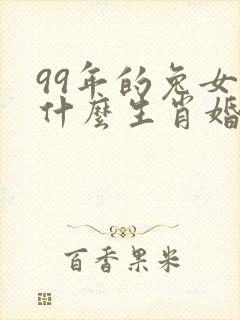 99年的兔女
什麼生肖婚
百香果米